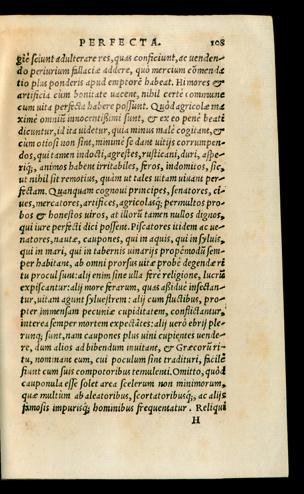 PERFECTA. 108
giè sciunt adulterare res, quas conficiunt, ac uenden-
do periurium fallaciæ addere, quò mercium cōmenda
tio plus ponderis apud emptorē habeat. Hi mores &
artificia cùm bonitate uacent, nihil certè commune
cum uita perfecta habere possunt. Quòd agricolæ ma
ximè omniū innocentissimi sunt, & ex eo penè beati
dicuntur, id ita uidetur, quia minus malè cogitant, &
cùm otiosi non sint, minimè se dant uitijs corrumpen-
dos, qui tamen indocti, agrestes, rusticani, duri, aspe-
riq;, animos habent irritabiles, feros, indomitos, sic,
ut nihil sit remotius, quàm ut tales uitam uiuant per-
fectam. Quanquam cognoui principes, senatores, ci-
ues, mercatores, artifices, agricolasq; permultos pro-
bos & honestos uiros, at illorū tamen nullos dignos,
qui iure perfecti dici possent. Piscatores itidem ac ue-
natores, nautæ, caupones, qui in aquis, qui in syluis,
qui in mari, qui in tabernis uinarijs propèmodū sem-
per habitant, ab omni prorsus uitæ probè degendæ ri
tu procul sunt: alij enim sine ulla ferè religione, lucrū
expiscantur: alij more ferarum, quas assiduè insectan-
tur, uitam agunt syluestrem: alij cum fluctibus, pro-
pter immensam pecuniæ cupiditatem, conflictantur,
interea semper mortem expectātes: alij uerò ebrij ple-
runq; sunt, nam caupones plus uini cupientes uende-
re, dum alios ad bibendum inuitant, & Græcorū ri-
tu, nominant eum, cui poculum sint tradituri, facilè
fiunt cum suis compotoribus temulenti. Omitto, quòd
cauponula esse solet area scelerum non minimorum,
quæ multùm ab aleatoribus, scortatoribusq;, ac alijs
famosis impurisq; hominibus frequentatur. Reliqui
H